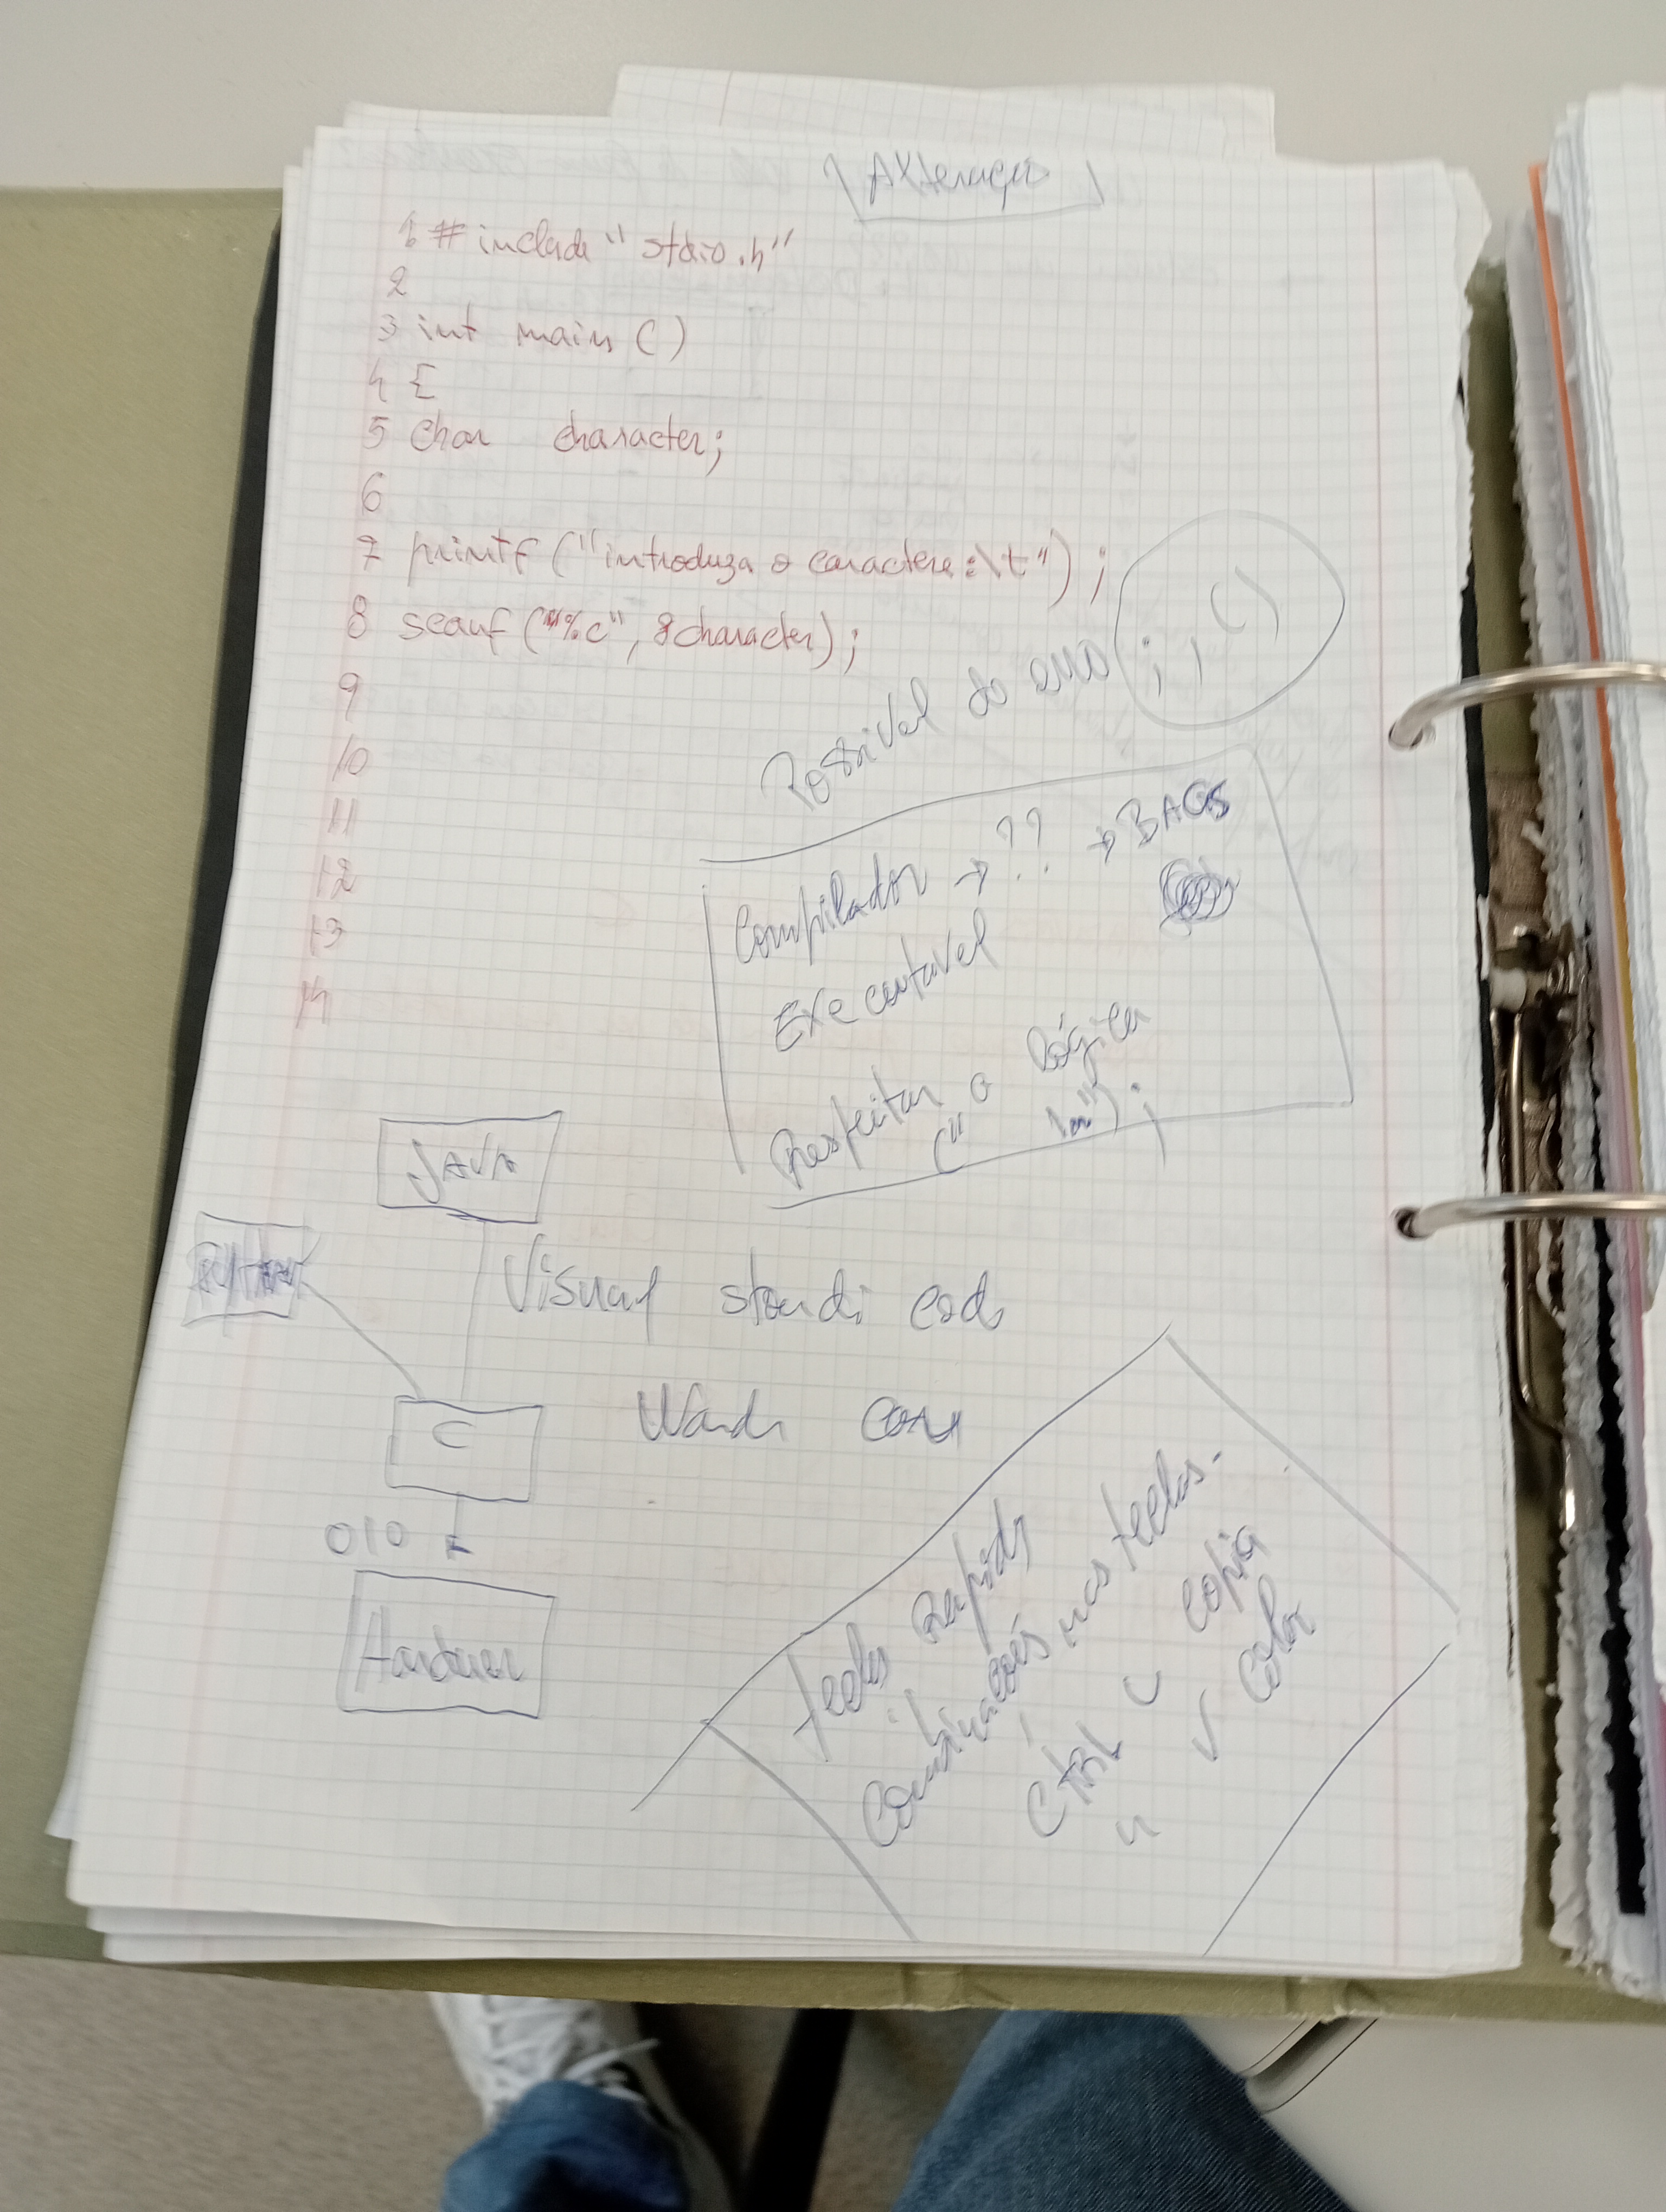 1 # include "stdio.h"
2
3 int main ()
4 {
5 char character;
6
7 printf ("introduza o caractere:\t") ;
8 scanf ("%c", &character);
9
10
11
12
13
14
Possivel do erro ; , ()
Compilador → ?? → BAGS
Executavel
Respeitar a lógica
(" \n");
JAVA
Visual standi cod
C
010
Teclas Rapids
Combinações nas teclas.
CTRL C copia
" V Colar